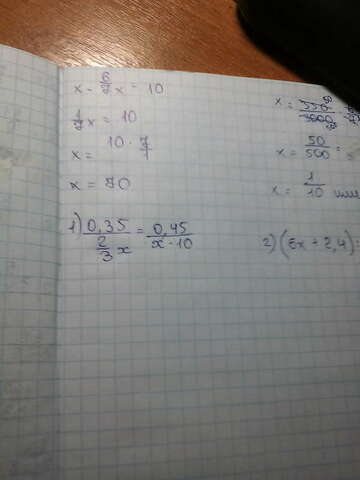 x - 6/7 x = 10
1/7 x = 10
x = 10 · 7/1
x = 70
1) 0,35 / (2/3 x) = 0,45 / (x - 10)
x =
x = 50/500 =
x = 1/10 или
2) (6x + 2,4) :